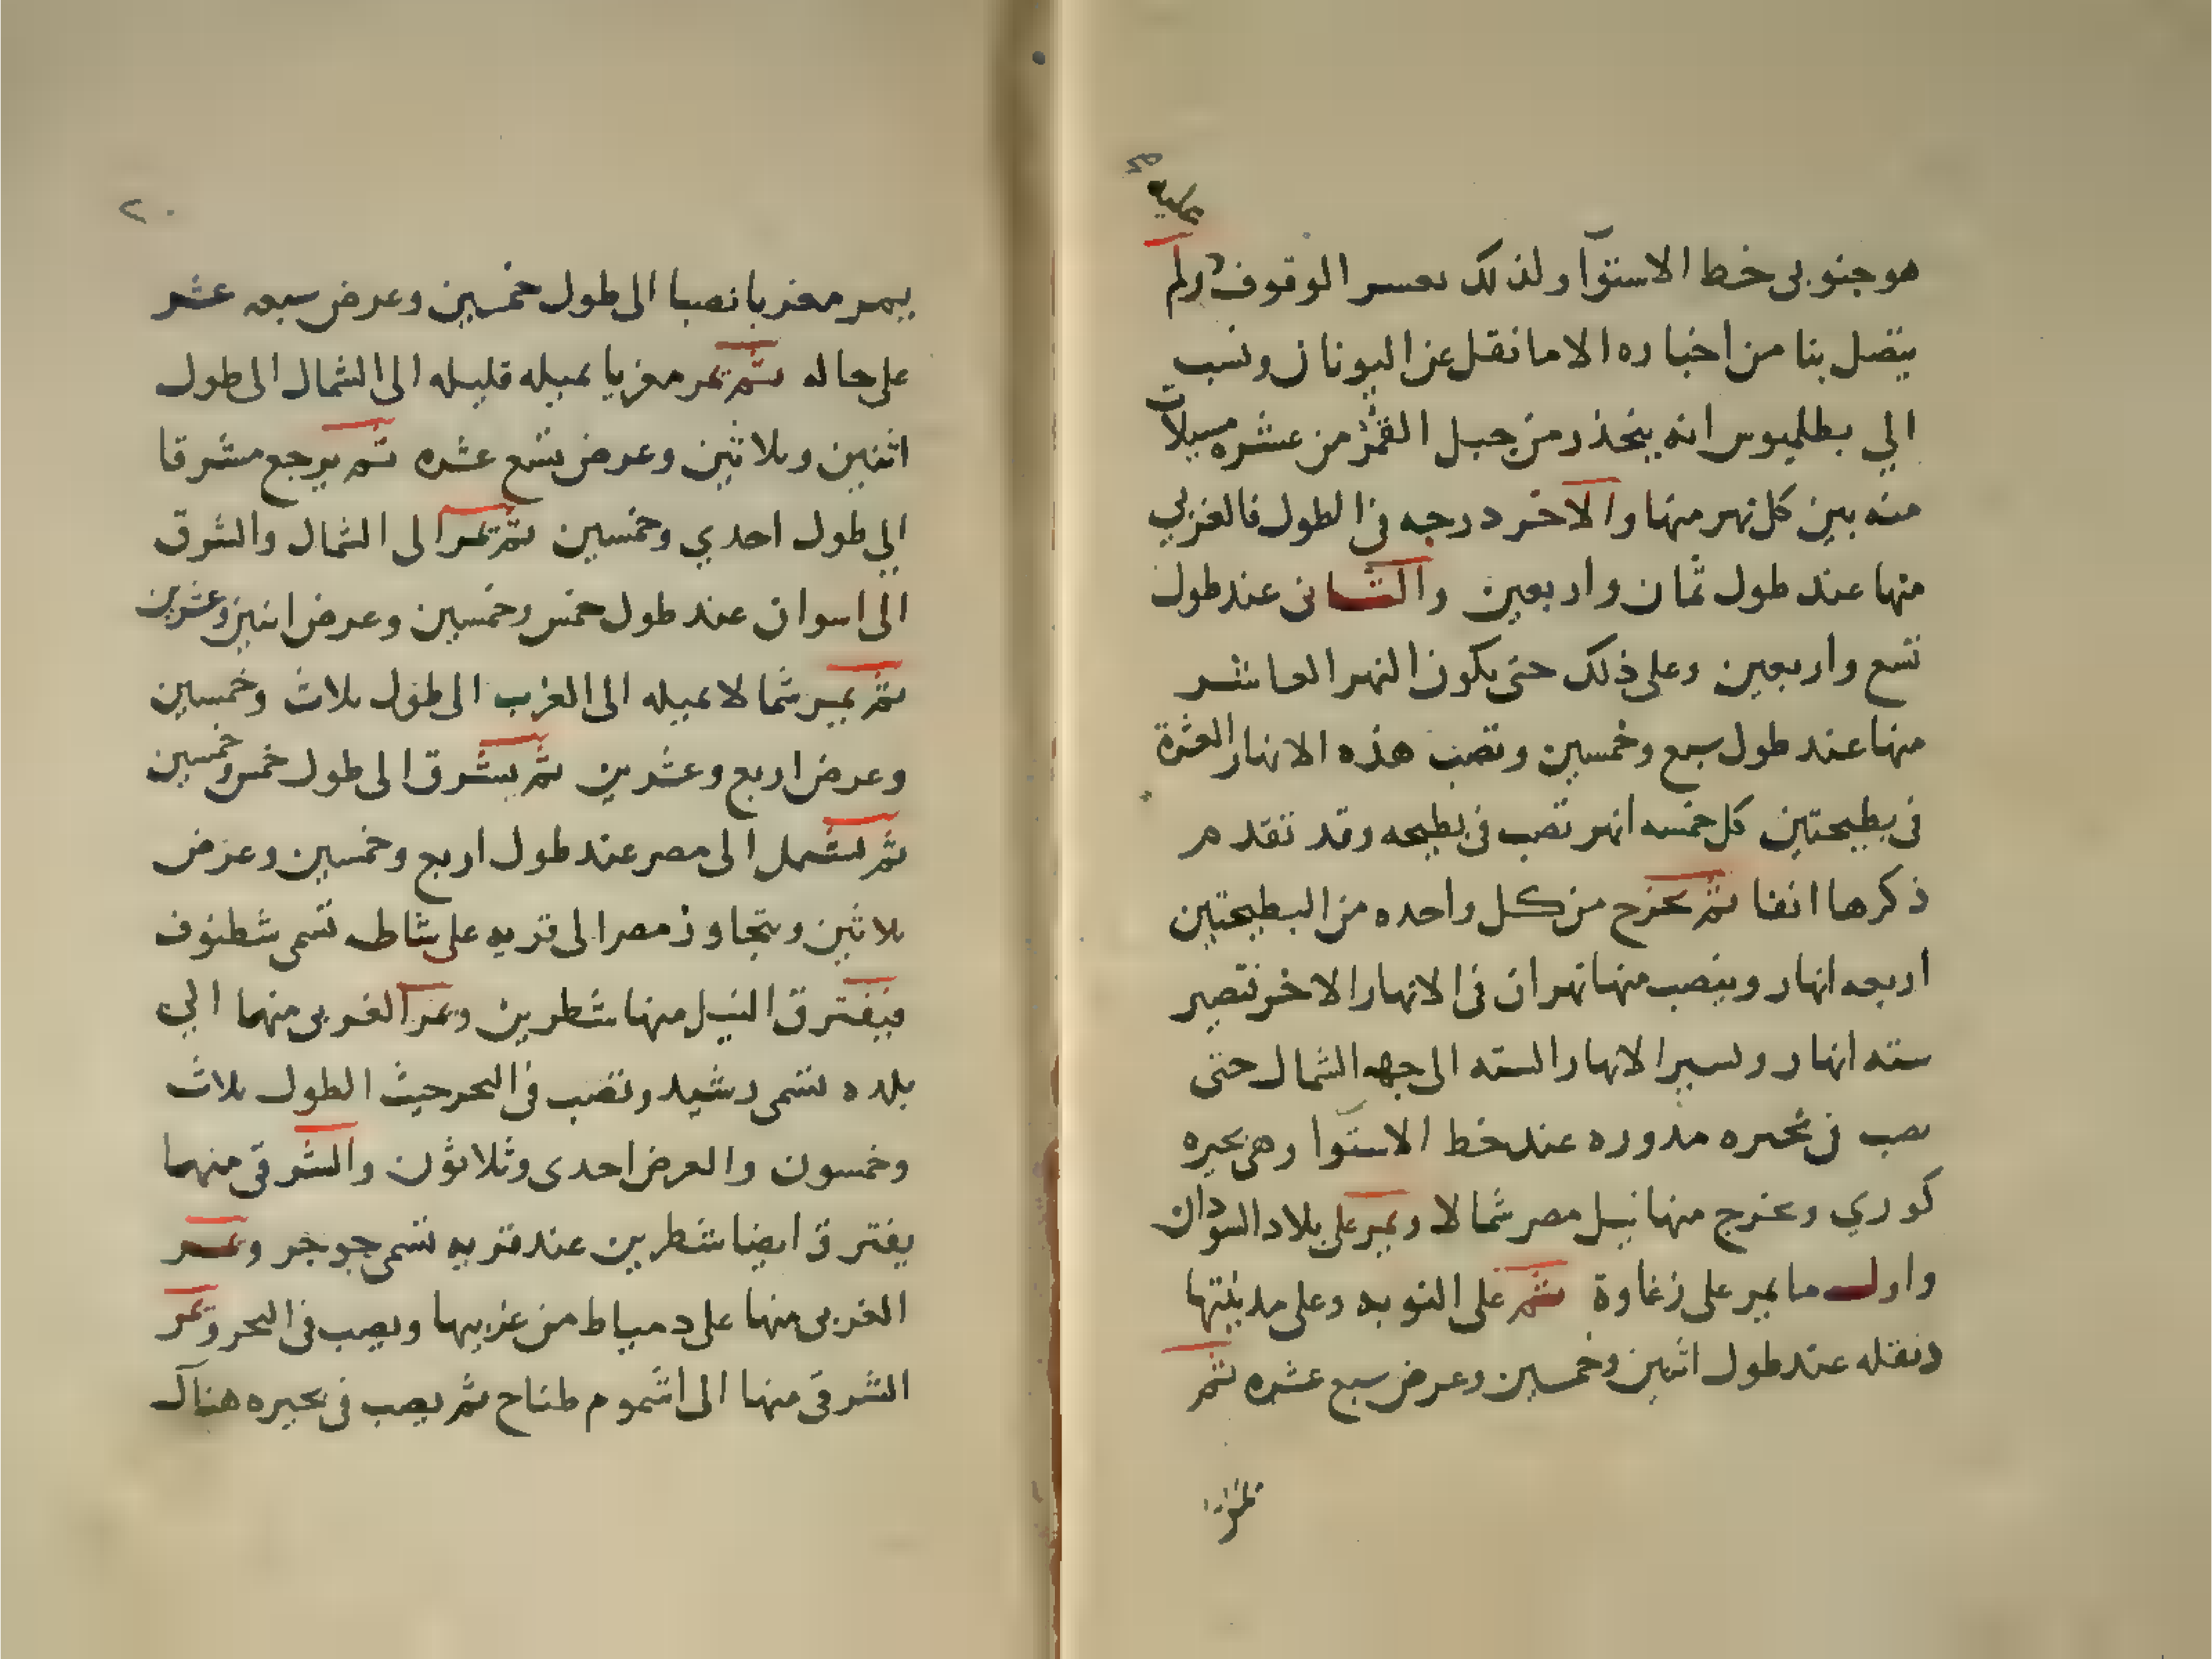 عليه صح
هو جنوبى خط الاستوآ ولذلك تعسر الوقوف ولم
يتصل بنا من اخباره الا ما نقل عن اليونان ونسب
الي بطلميوس انه ينحذر من جبل القمر من عشره مسيلات
منه بين كل نهر منها والاخر درجه فى الطول فالغربي
منها عند طول ثمان واربعين والثانى عند طول
تسع واربعين وعلى ذلك حتى يكون النهر العاشر
منها عند طول سبع وخمسين وتصب هذه الانهار العشرة
فى بطيحتين كل خمسه انهر تصب فى بطيحه وقد تقدم
ذكرها انفا ثم تخرج من كل واحده من البطيحتين
اربعه انهار وينصب منها نهران فى الانهار الاخر فتصير
سته انهار وتسير الانهار السته الى جهه الشمال حتى
تصب فى بحيره مدوره عند خط الاستوا وهى بحيره
كوري وتخرج منها نيل مصر شمالا ويمر على بلاد السودان
واول ما يمر على زغاوة ثم على النوبه وعلى مدينتها
دنقله عند طول اثنين وخمسين وعرض سبع عشره ثم
يمر مغربا نصبا الى طول خمسين وعرض سبعه عشر
على حاله ثم تمر مغربا بميله قليله الى الشمال الى طول
اثنين وثلاثين وعرض تسع عشره ثم يرجع مشرقا
الي طول احدي وخمسين ثم تمر الى الشمال والشرق
الى اسوان عند طول خمس وخمسين وعرض اثنين وعشرين
ثم يمر شمالا بميله الى الغرب الى طول ثلاث وخمسين
وعرض اربع وعشرين ثم يشرق الى طول خمس وخمسين
ثم يشمل الى مصر عند طول اربع وخمسين وعرض
ثلاثين ويتجاوز مصر الى قريه على شاطه تسمى شطنوف
فيفترق النيل منها شطرين ويمر الغربى منهما الي
بلده تسمى رشيد وتصب فى البحر حيث الطول ثلاث
وخمسون والعرض احدى وثلاثون والشرقى منهما
يفترق ايضا شطرين عند قريه تسمى جوجر ويمر
الغربى منها على دمياط من غربيها ويصب فى البحر ويمر
الشرقى منها الى اشموم طناح ثم يصب فى بحيره هناك